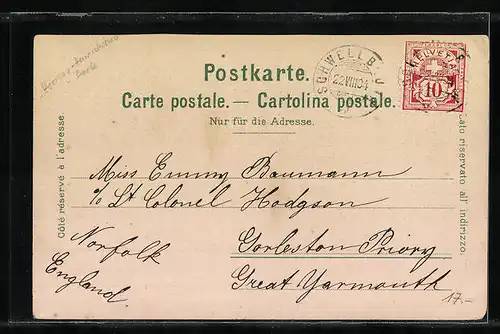 Postkarte.
Carte postale. — Cartolina postale.
Nur für die Adresse.
Côté réservé à l'adresse.
Lato riservato all' indirizzo.
SCHWELLB
22 VIII 04
HELVETIA
10
Miss Emmy Baumann
c/o Lt Colonel Hodgson
Gorleston Priory
Great Yarmouth
Norfolk
England
17.-